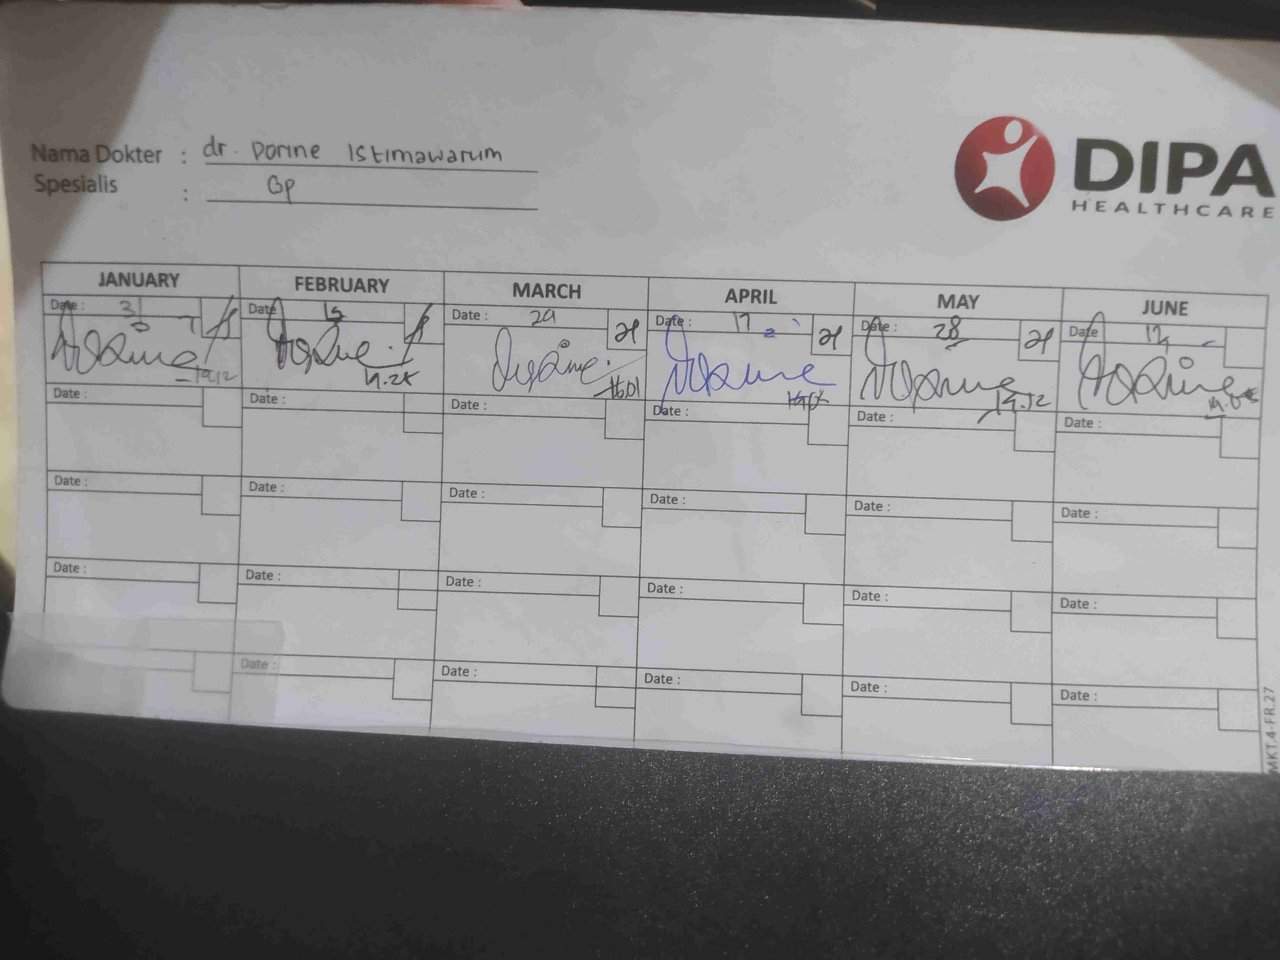 Nama Dokter : dr. Dorine Istimawarum
Spesialis : Gp
DIPA
HEALTHCARE
JANUARY FEBRUARY MARCH APRIL MAY JUNE
Date : 31 Date 15 Date : 29 Date : 17 Date : 28 Date 17
19.12 19.28 16.01 19.12
Date : Date : Date : Date : Date : Date :
Date : Date : Date : Date : Date : Date :
Date : Date : Date : Date : Date : Date :
Date : Date : Date : Date : Date :
MKT.4-FR.27